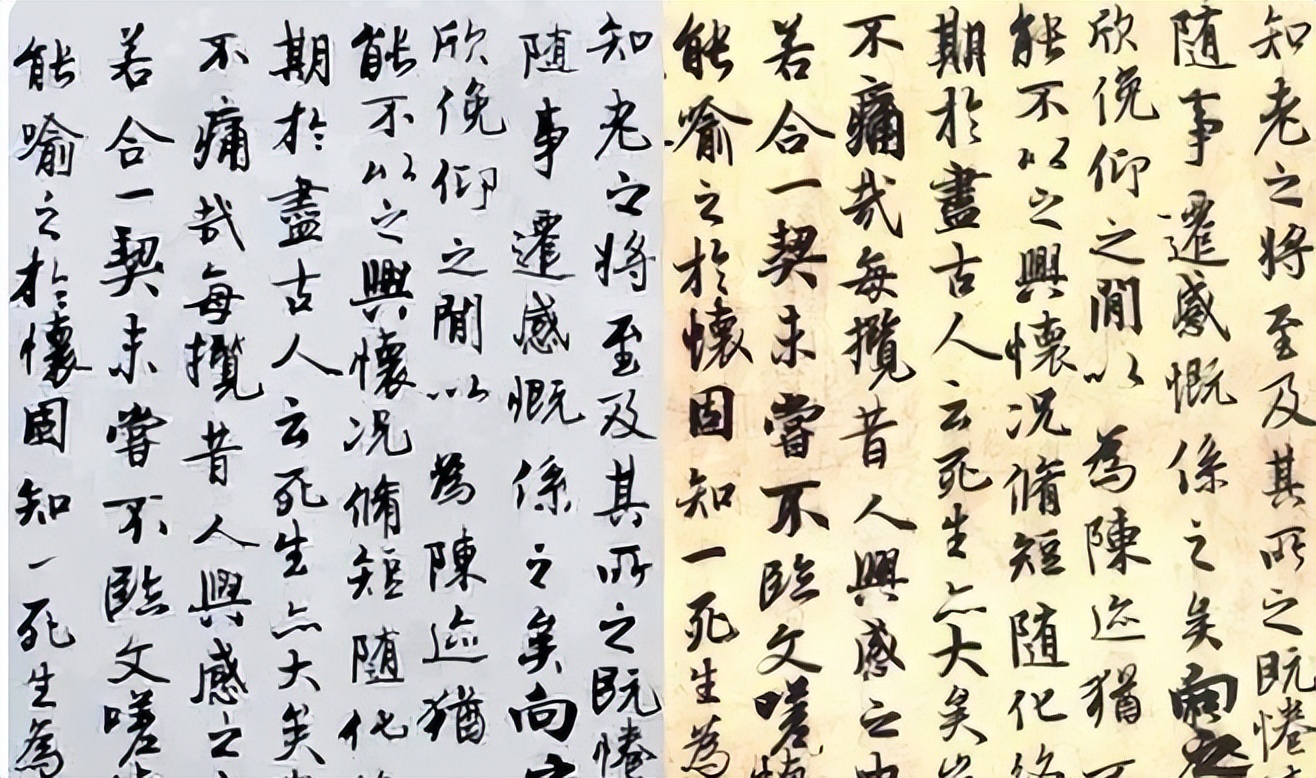 知老之将至及其所之既惓
随事遷感慨係之矣向之
欣俛仰之閒以為陳迹猶
能不以之興懷况脩短随化
期於盡古人云死生亦大矣
不痛哉每攬昔人興感之
若合一契未嘗不臨文嗟
能喻之於懷固知一死生為
知老之将至及其所之既惓
随事遷感慨係之矣向之
欣俛仰之閒以為陳迹猶不
能不以之興懷况脩短随化終
期於盡古人云死生亦大矣
不痛哉每攬昔人興感之由
若合一契未嘗不臨文嗟悼
能喻之於懷固知一死生為